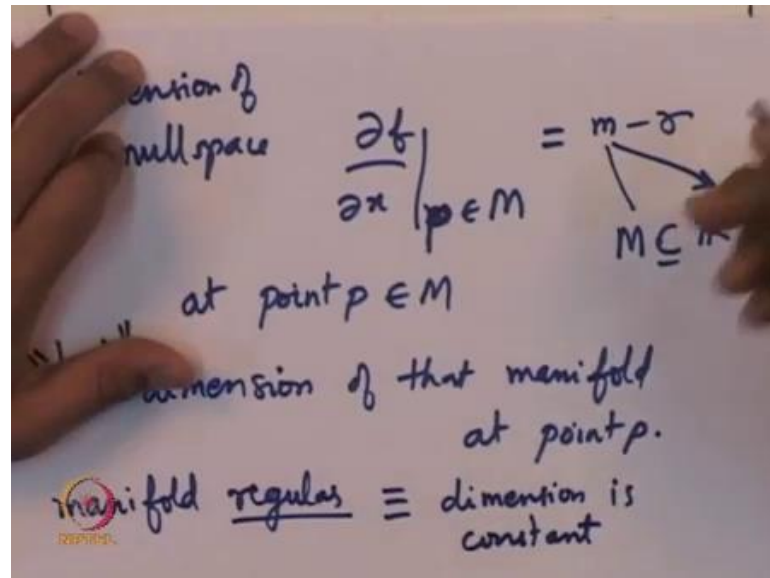 ension of
null space ∂f/∂x |p ∈ M = m - r
M ⊆
at point p ∈ M
dimension of that manifold
at point p.
manifold regular ≡ dimension is
constant
NPTEL